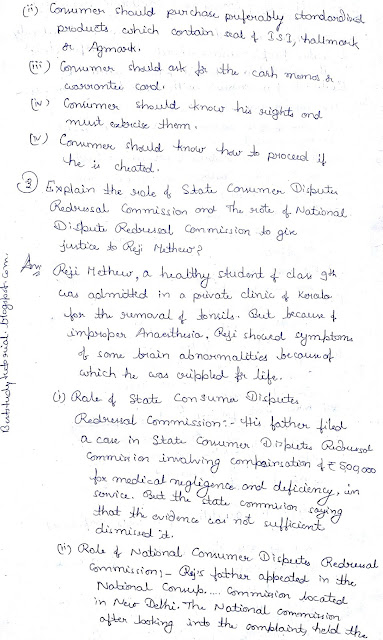 (ii) Consumer should purchase preferably standardised
products which contain seal of ISI, hallmark
or Agmark.
(iii) Consumer should ask for the cash memos or
warrantee card.
(iv) Consumer should know his rights and
must exercise them.
(v) Consumer should know how to proceed if
he is cheated.
③ Explain the role of State Consumer Disputes
Redressal Commission and The role of National
Dispute Redressal Commission to give
justice to Reji Mathew?
Ans Reji Methew, a healthy student of class 9th
was admitted in a private clinic of Kerala
for the removal of tonsils. But because of
improper Anaesthesia. Reji showed symptoms
of some brain abnormalities because of
which he was crippled for life.
(i) Role of State Consumer Disputes
Redressal Commission:- His father filed
a case in State Consumer Disputes Redressal
commission involving compensation of ₹500,000
for medical negligence and deficiency, in
service. But the state commission saying
that the evidence was not sufficient
dismissed it.
(ii) Role of National Consumer Disputes Redressal
Commission;- Reji's father appealed in the
National Consup.... Commission located
in New Delhi. The National commission
after looking into the complaint, held the
Bstudytutorial.blogspot.com